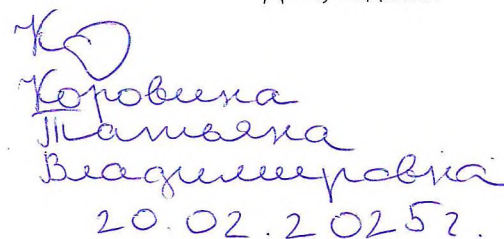 Коровина
Татьяна
Владимировна
20.02.2025г.